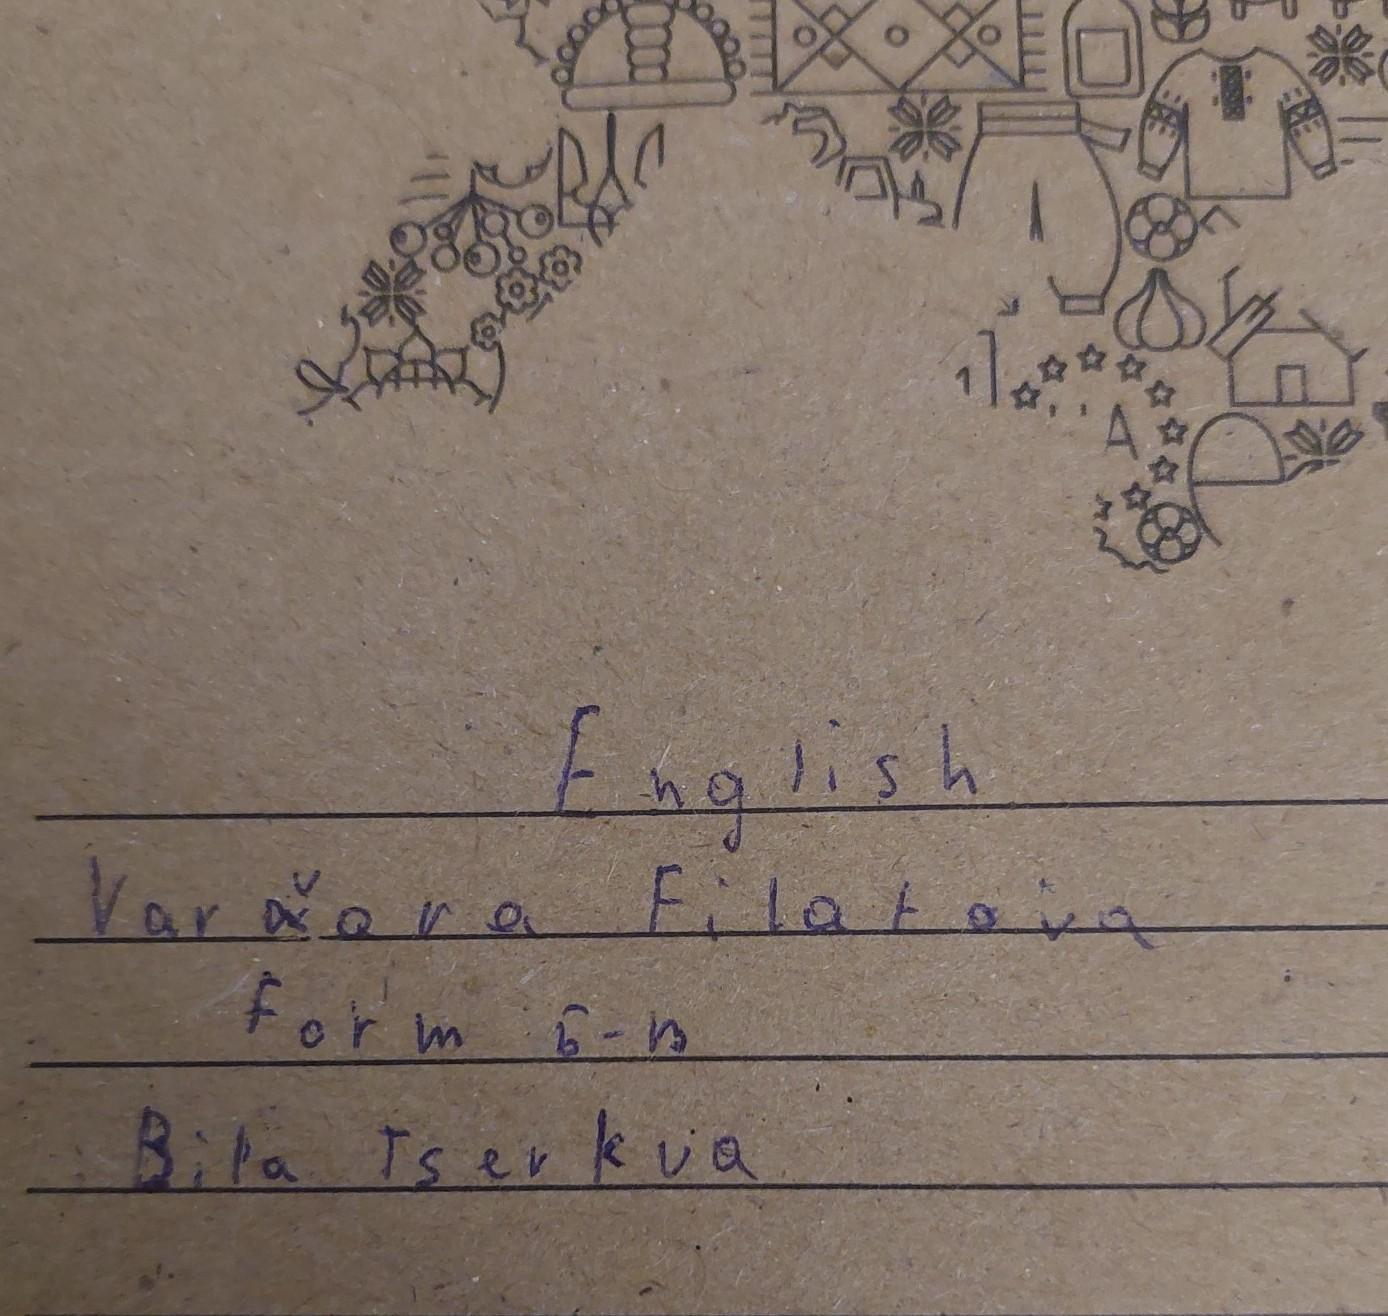 English
Varvara Filatova
form 5-B
Bila Tserkva